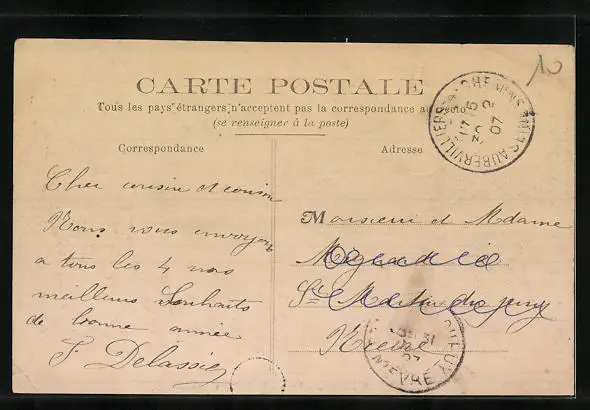 10
CARTE POSTALE
Tous les pays étrangers n'acceptent pas la correspondance au
(se renseigner à la poste)
AUBERVILLIERS
17 15
30 12
07
SEINE
Correspondance
Adresse
Cher cousin et cousine
Nous vous envoyons
a tous les 4 nos
meilleurs Souhaits
de bonne année
F. Delassie
Monsieur et Madame
St
Nièvre
31
07
NIEVRE